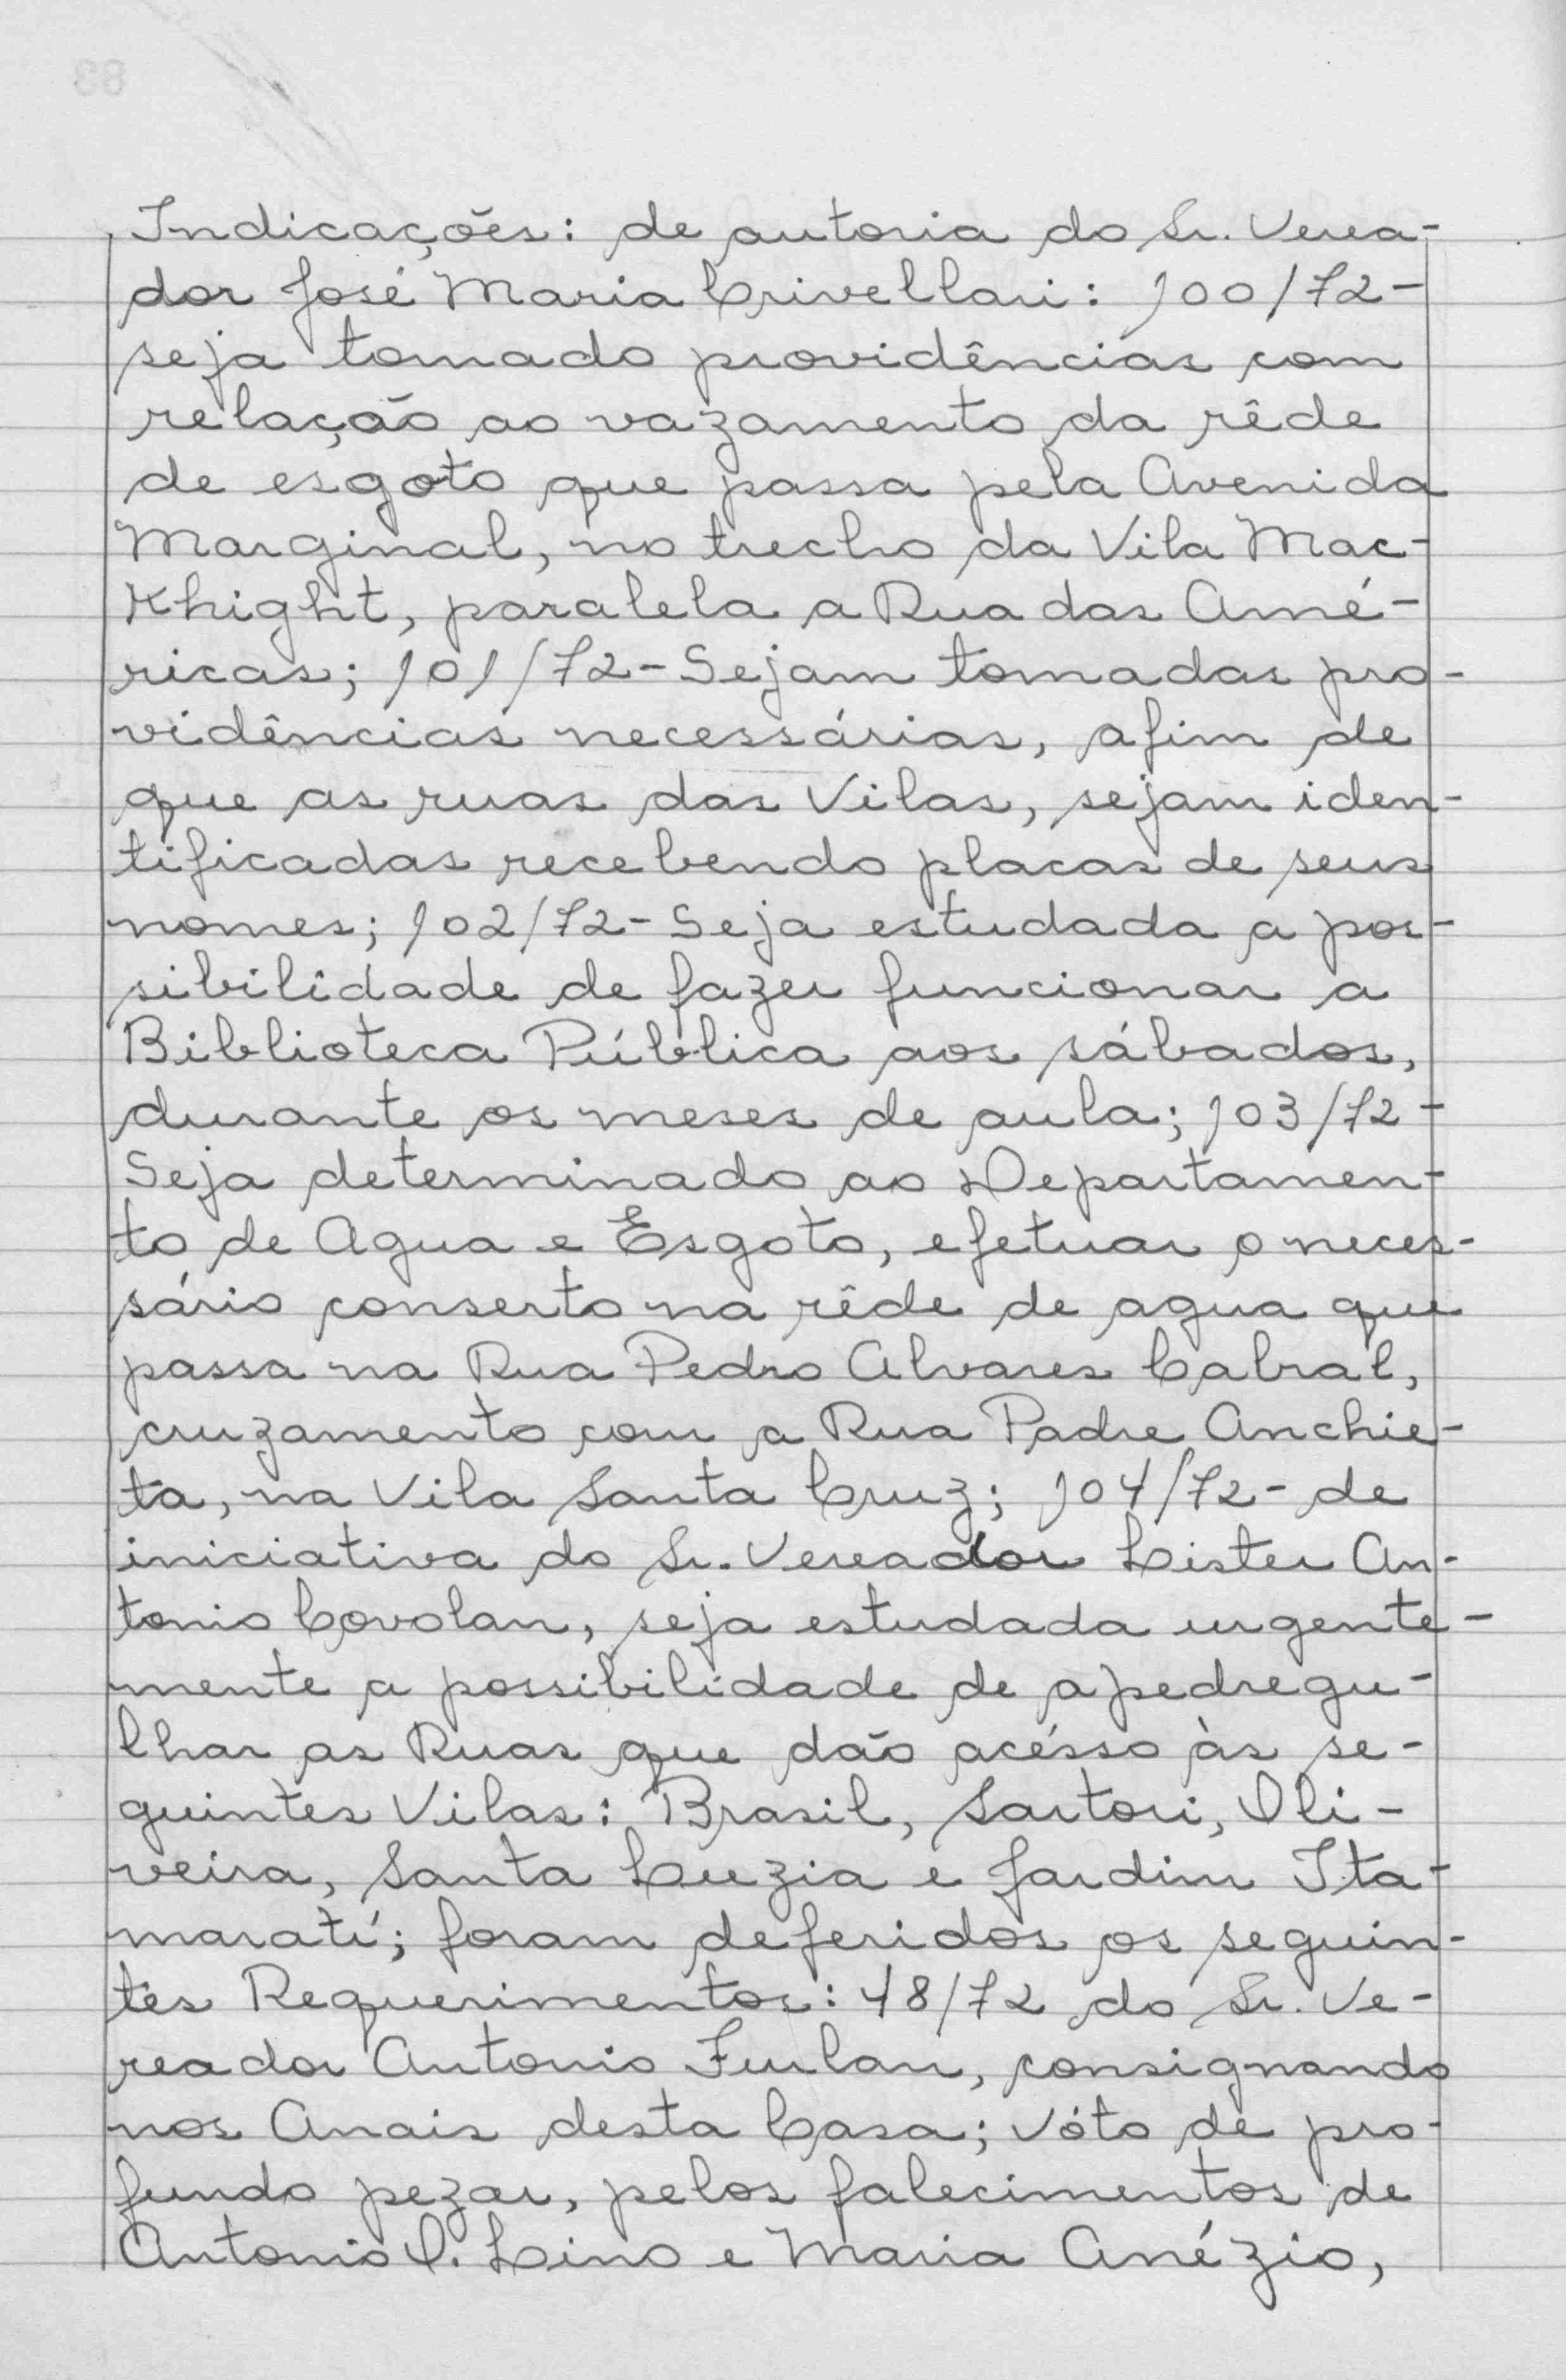 Indicações: de autoria do Sr. Verea-
dor José Maria Crivellari: 100/72-
seja tomado providências com
relação ao vazamento da rêde
de esgoto que passa pela Avenida
Marginal, no trecho da Vila Mac-
Khight, paralela a Rua das Amé-
ricas; 101/72- Sejam tomadas pro-
vidências necessárias, afim de
que as ruas das Vilas, sejam iden-
tificadas recebendo placas de seus
nomes; 102/72- Seja estudada a pos-
sibilidade de fazer funcionar a
Biblioteca Pública aos sábados,
durante os meses de aula; 103/72-
Seja determinado ao Departamen-
to de Agua e Esgoto, efetuar o neces-
sário conserto na rêde de agua que
passa na Rua Pedro Alvares Cabral,
cruzamento com a Rua Padre Anchie-
ta, na Vila Santa Cruz; 104/72- de
iniciativa do Sr. Vereador Lister An-
tonio Covolan, seja estudada urgente-
mente a possibilidade de apedregu-
lhar as Ruas que dão acésso às se-
guintes Vilas: Brasil, Sartori, Oli-
veira, Santa Luzia e Jardim Ita-
maratí; foram deferidos os seguin-
tes Requerimentos: 48/72 do Sr. Ve-
reador Antonio Furlan, consignando
nos Anais desta Casa; vóto de pro-
fundo pezar, pelos falecimentos de
Antonio O. Lino e Maria Anézio,